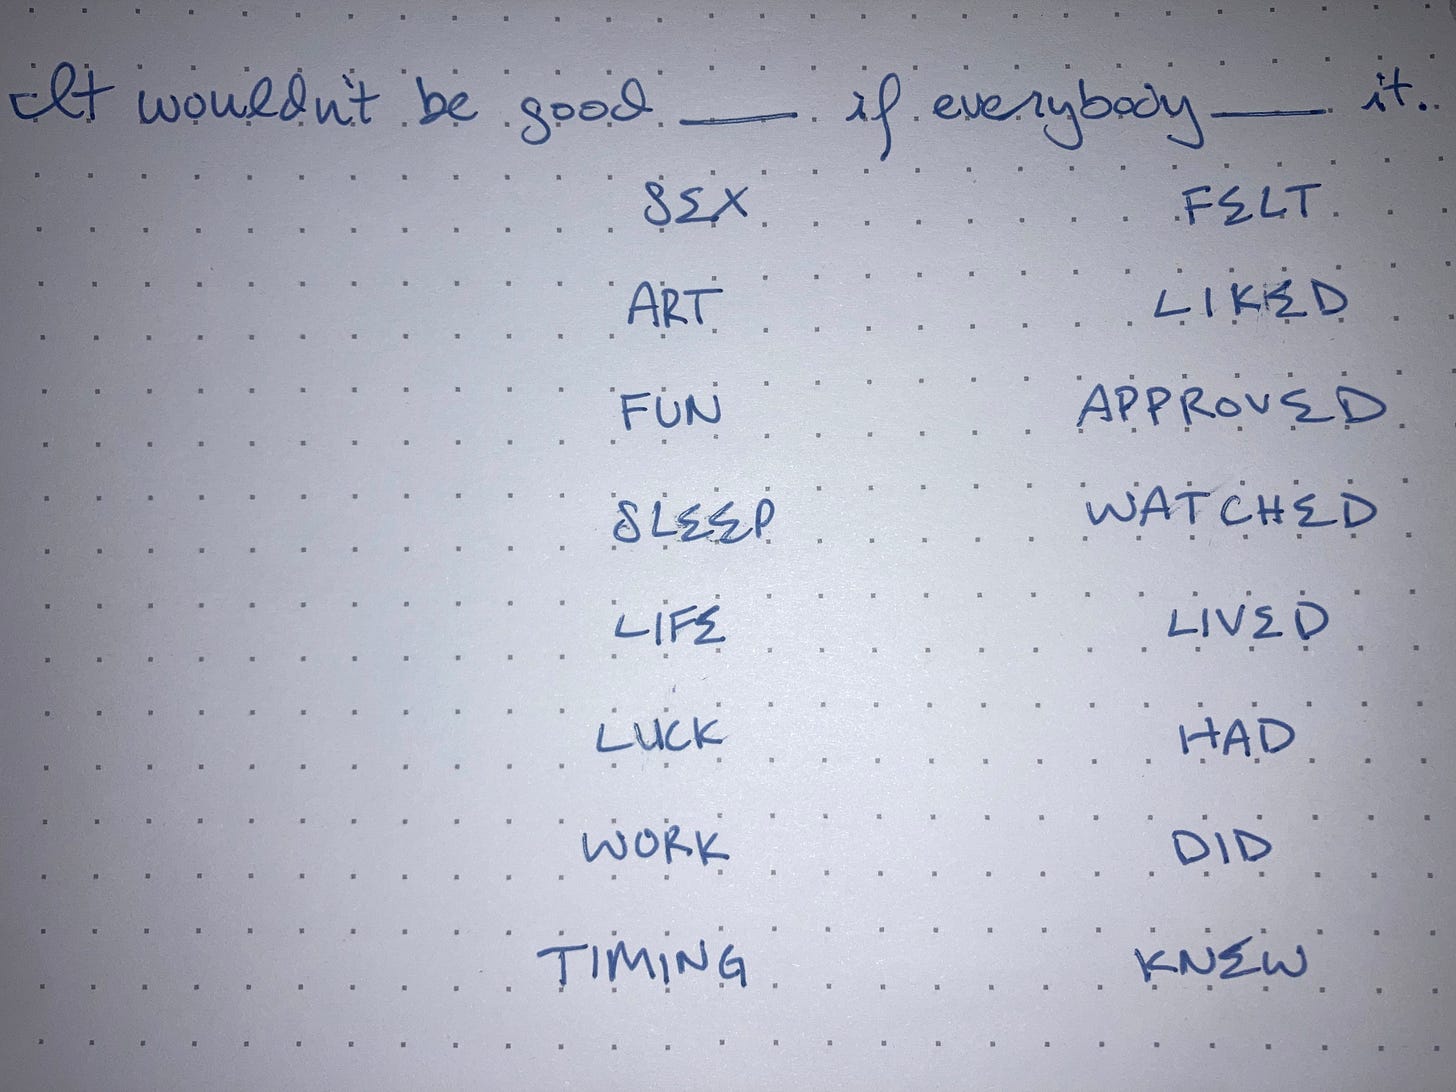 It wouldn't be good ___ if everybody ___ it.
SEX FELT
ART LIKED
FUN APPROVED
SLEEP WATCHED
LIFE LIVED
LUCK HAD
WORK DID
TIMING KNEW